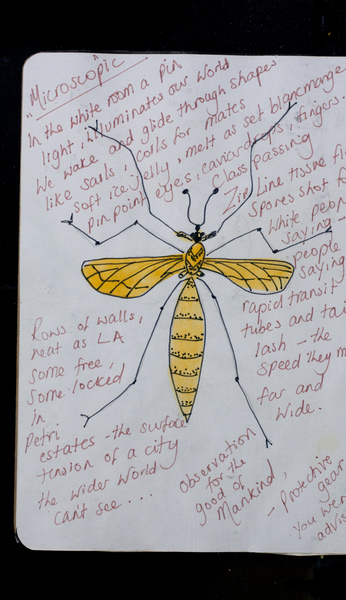 "Microscopic"
In the white room a pin
light, illuminates our world
We wake and glide through shapes
like sails, calls for mates
soft ice jelly, melt as set blancmange
pin point eyes, caviar drops, fingers.
Class passing
Zip Line tissue
spores shot
white people
saying -
people
saying
rapid transit
tubes and tail
lash - the
speed they
far and
wide.
Rows of walls,
neat as LA
some free,
some locked
in
Petri
estates - the surface
tension of a city
the wider world
can't see ....
Observation
for the
good of
Mankind,
- Protective
gear
You were